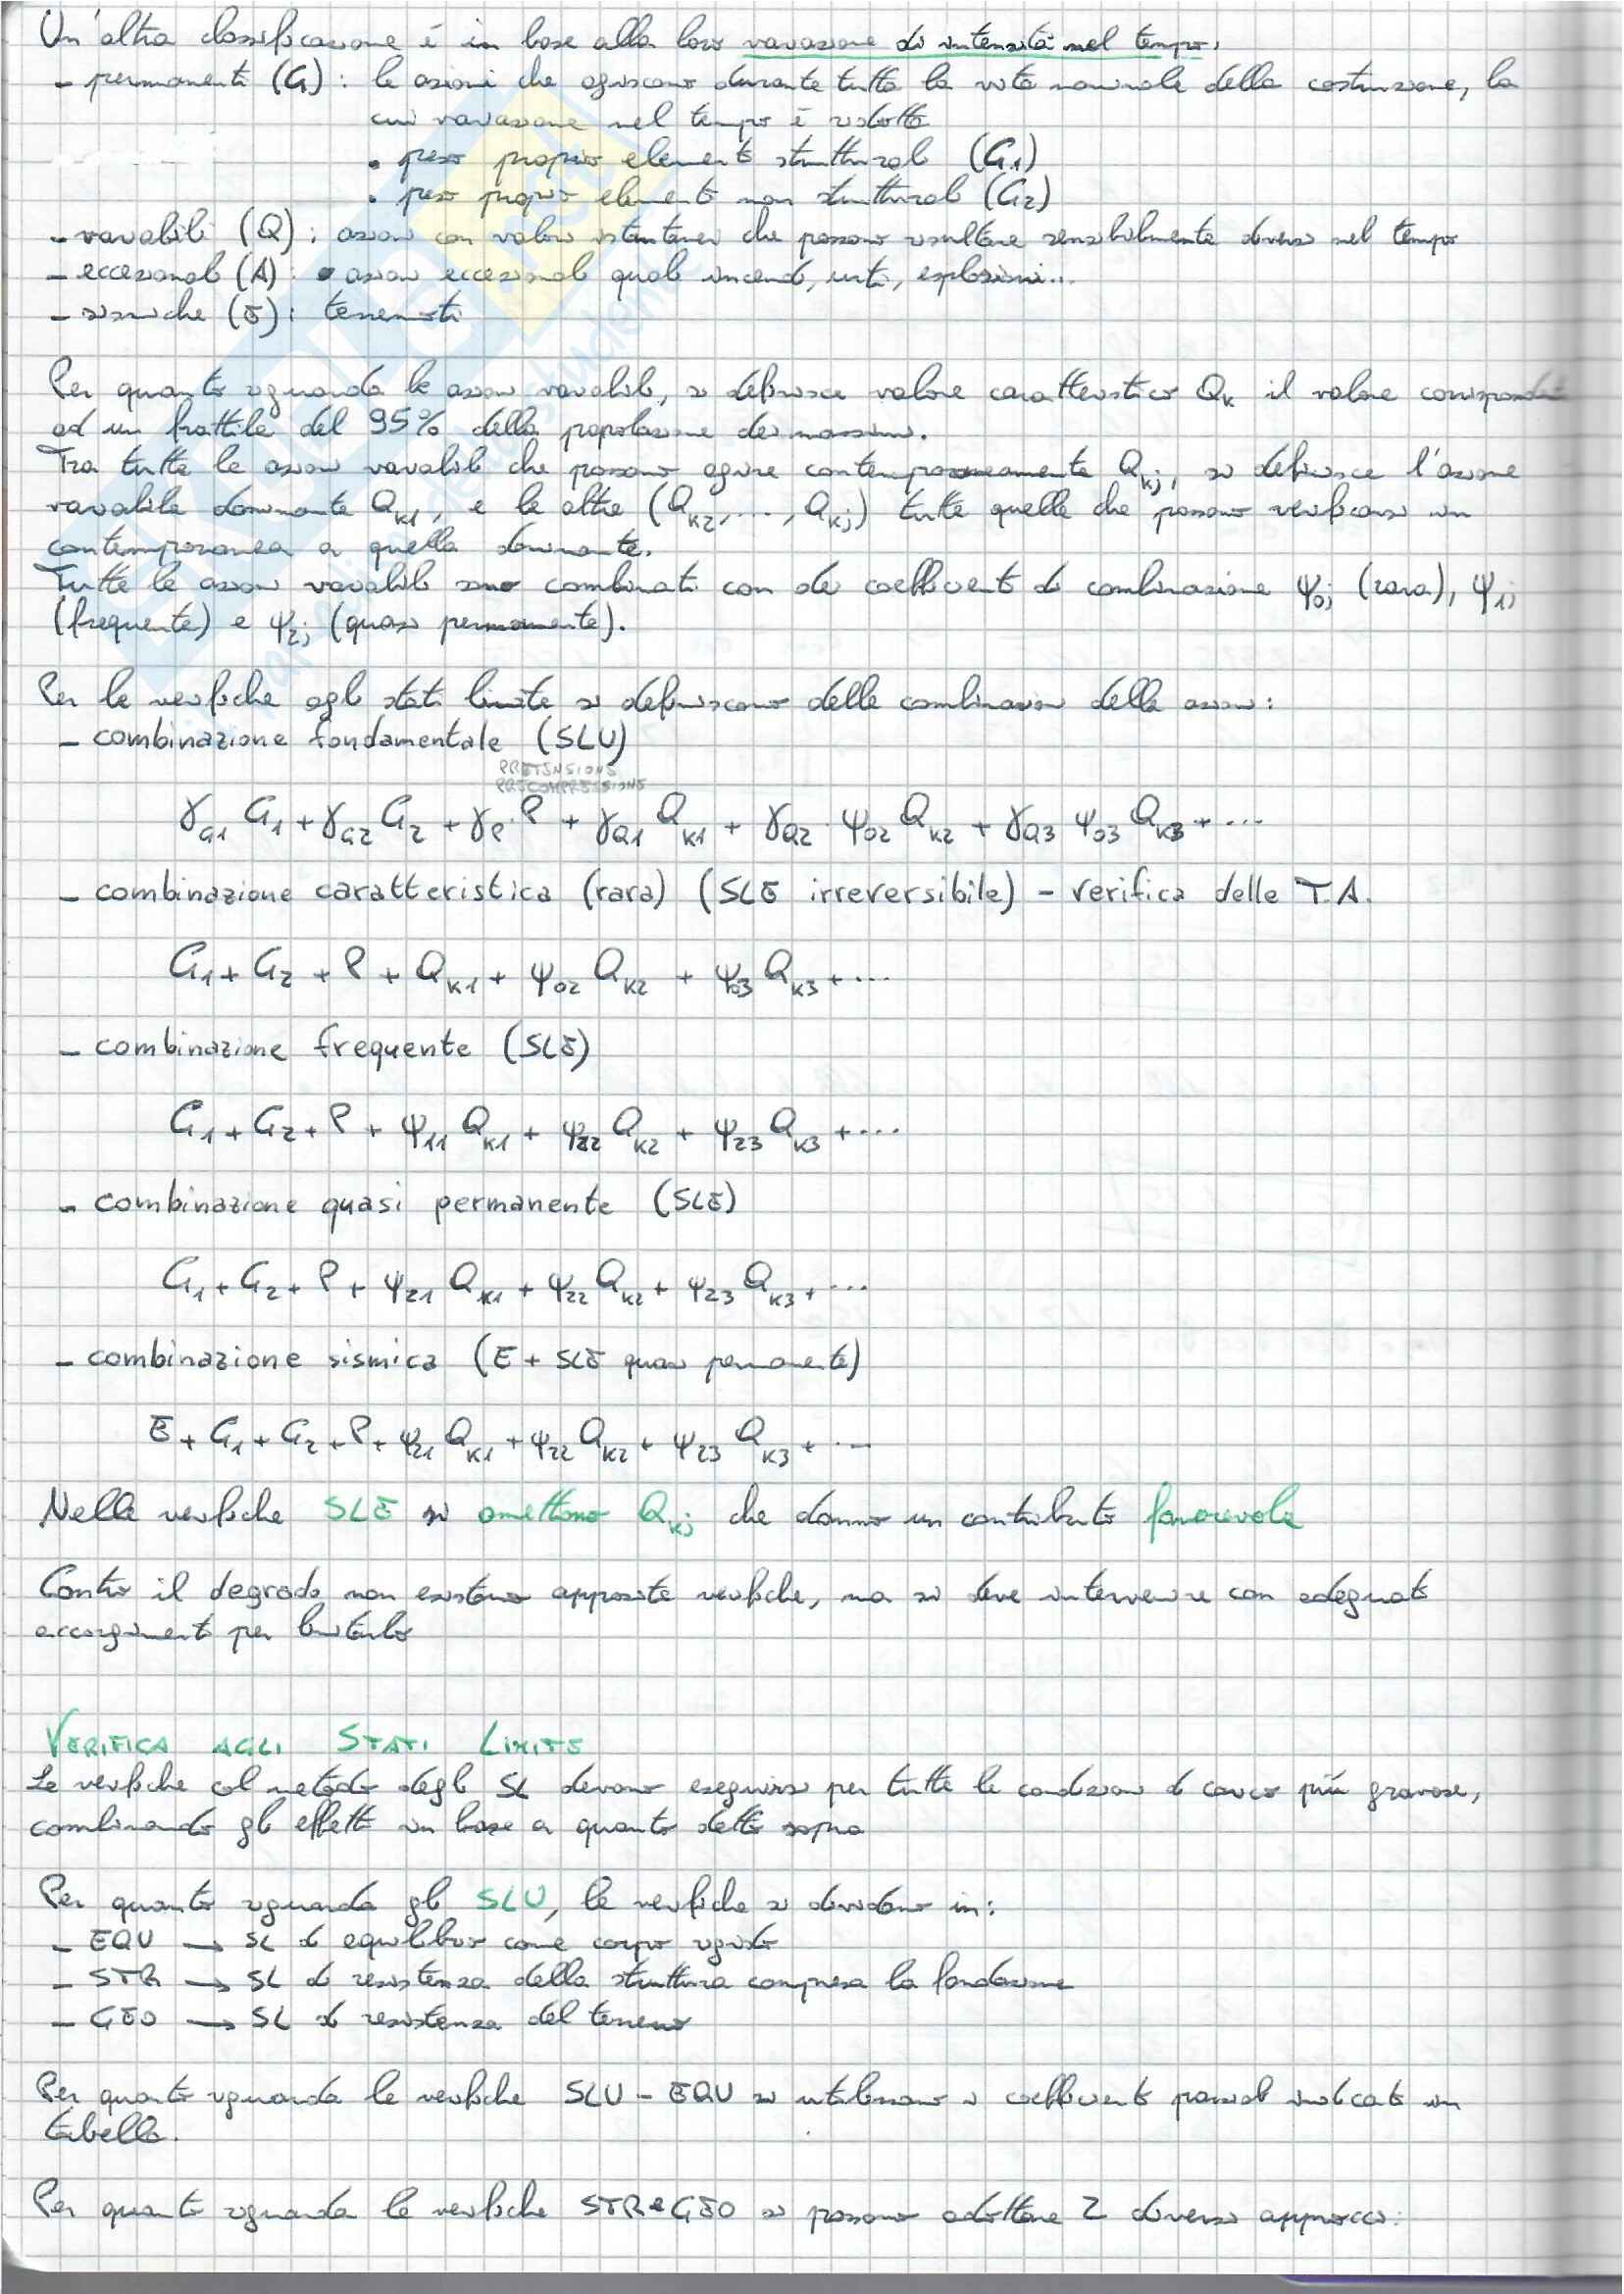 Un'altra classificazione è in base alla loro variazione di intensità nel tempo:
- permanenti (G): le azioni che agiscono durante tutta la vita nominale della costruzione, la
cui variazione nel tempo è ridotta
• peso proprio elementi strutturali (G1)
• peso proprio elementi non strutturali (G2)
- variabili (Q): azioni con valori istantanei che possono risultare sensibilmente diversi nel tempo
- eccezionali (A): azioni eccezionali quali incendi, urti, esplosioni...
- sismiche (E): terremoti
Per quanto riguarda le azioni variabili, si definisce valore caratteristico Qk il valore corrispondente
ad un frattile del 95% della popolazione dei massimi.
Tra tutte le azioni variabili che possono agire contemporaneamente Qkj, si definisce l'azione
variabile dominante Qk1, e le altre (Qk2, ..., Qkj) tutte quelle che possono verificarsi in
contemporanea a quella dominante.
Tutte le azioni variabili sono combinati con dei coefficienti di combinazione ψ0j (rara), ψ1j
(frequente) e ψ2j (quasi permanente).
Per le verifiche agli stati limite si definiscono delle combinazioni delle azioni:
- combinazione fondamentale (SLU)
PRETENSIONE
PRECOMPRESSIONE
γG1 G1 + γG2 G2 + γP · P + γQ1 Qk1 + γQ2 · ψ02 Qk2 + γQ3 ψ03 Qk3 + ...
- combinazione caratteristica (rara) (SLE irreversibile) - verifica delle T.A.
G1 + G2 + P + Qk1 + ψ02 Qk2 + ψ03 Qk3 + ...
- combinazione frequente (SLE)
G1 + G2 + P + ψ11 Qk1 + ψ22 Qk2 + ψ23 Qk3 + ...
- combinazione quasi permanente (SLE)
G1 + G2 + P + ψ21 Qk1 + ψ22 Qk2 + ψ23 Qk3 + ...
- combinazione sismica (E + SLE quasi permanente)
E + G1 + G2 + P + ψ21 Qk1 + ψ22 Qk2 + ψ23 Qk3 + ...
Nelle verifiche SLE si omettono Qkj che danno un contributo favorevole
Contro il degrado non esistono apposite verifiche, ma si deve intervenire con adeguati
accorgimenti per limitarlo
VERIFICA AGLI STATI LIMITE
Le verifiche col metodo degli SL devono eseguirsi per tutte le condizioni di carico più gravose,
combinando gli effetti in base a quanto detto sopra
Per quanto riguarda gli SLU, le verifiche si dividono in:
- EQU → SL di equilibrio come corpo rigido
- STR → SL di resistenza della struttura compresa la fondazione
- GEO → SL di resistenza del terreno
Per quanto riguarda le verifiche SLU - EQU si utilizzano i coefficienti parziali indicati in
tabella.
Per quanto riguarda le verifiche STR e GEO si possono adottare 2 diversi approcci: